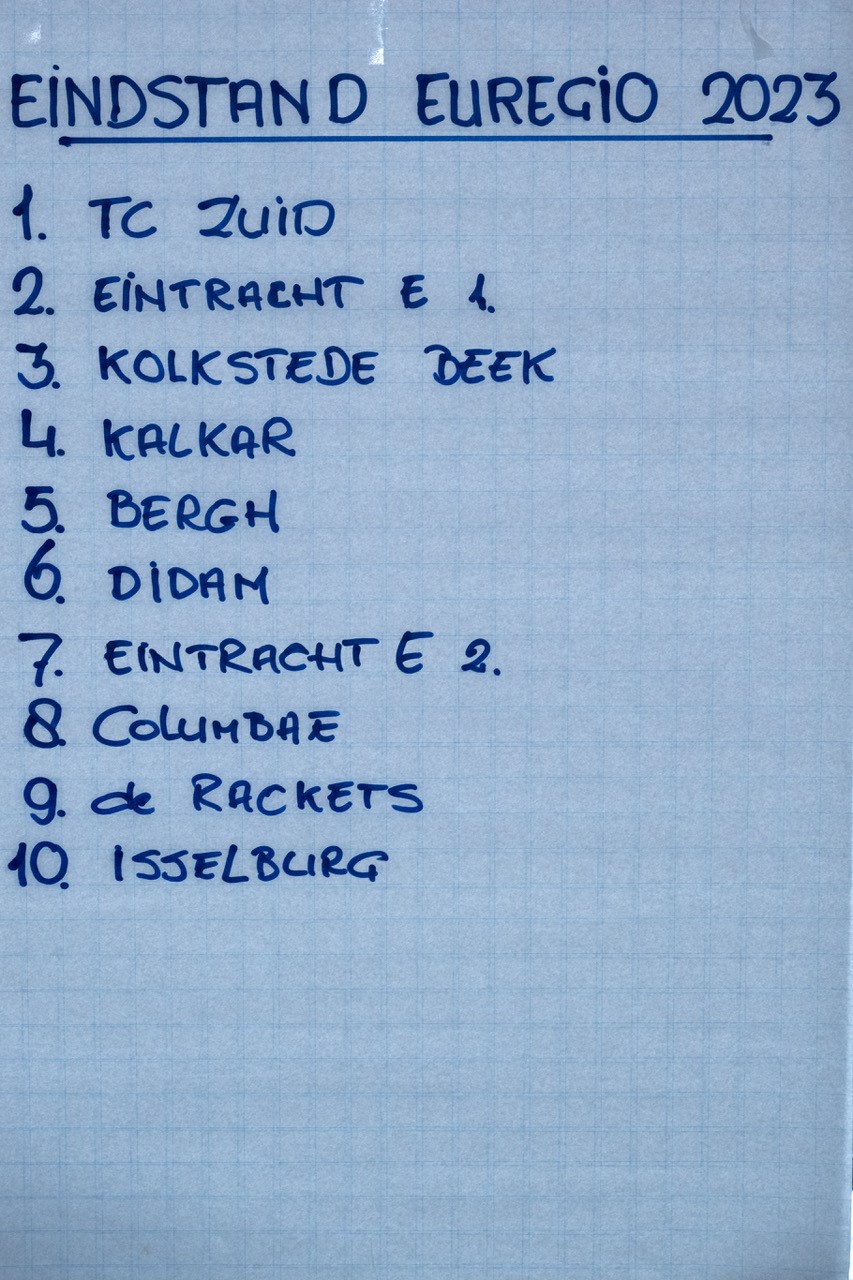 EINDSTAND EUREGIO 2023
1. TC ZUID
2. EINTRACHT E 1.
3. KOLKSTEDE BEEK
4. KALKAR
5. BERGH
6. DIDAM
7. EINTRACHT E 2.
8. COLUMBAE
9. de RACKETS
10. ISSELBURG